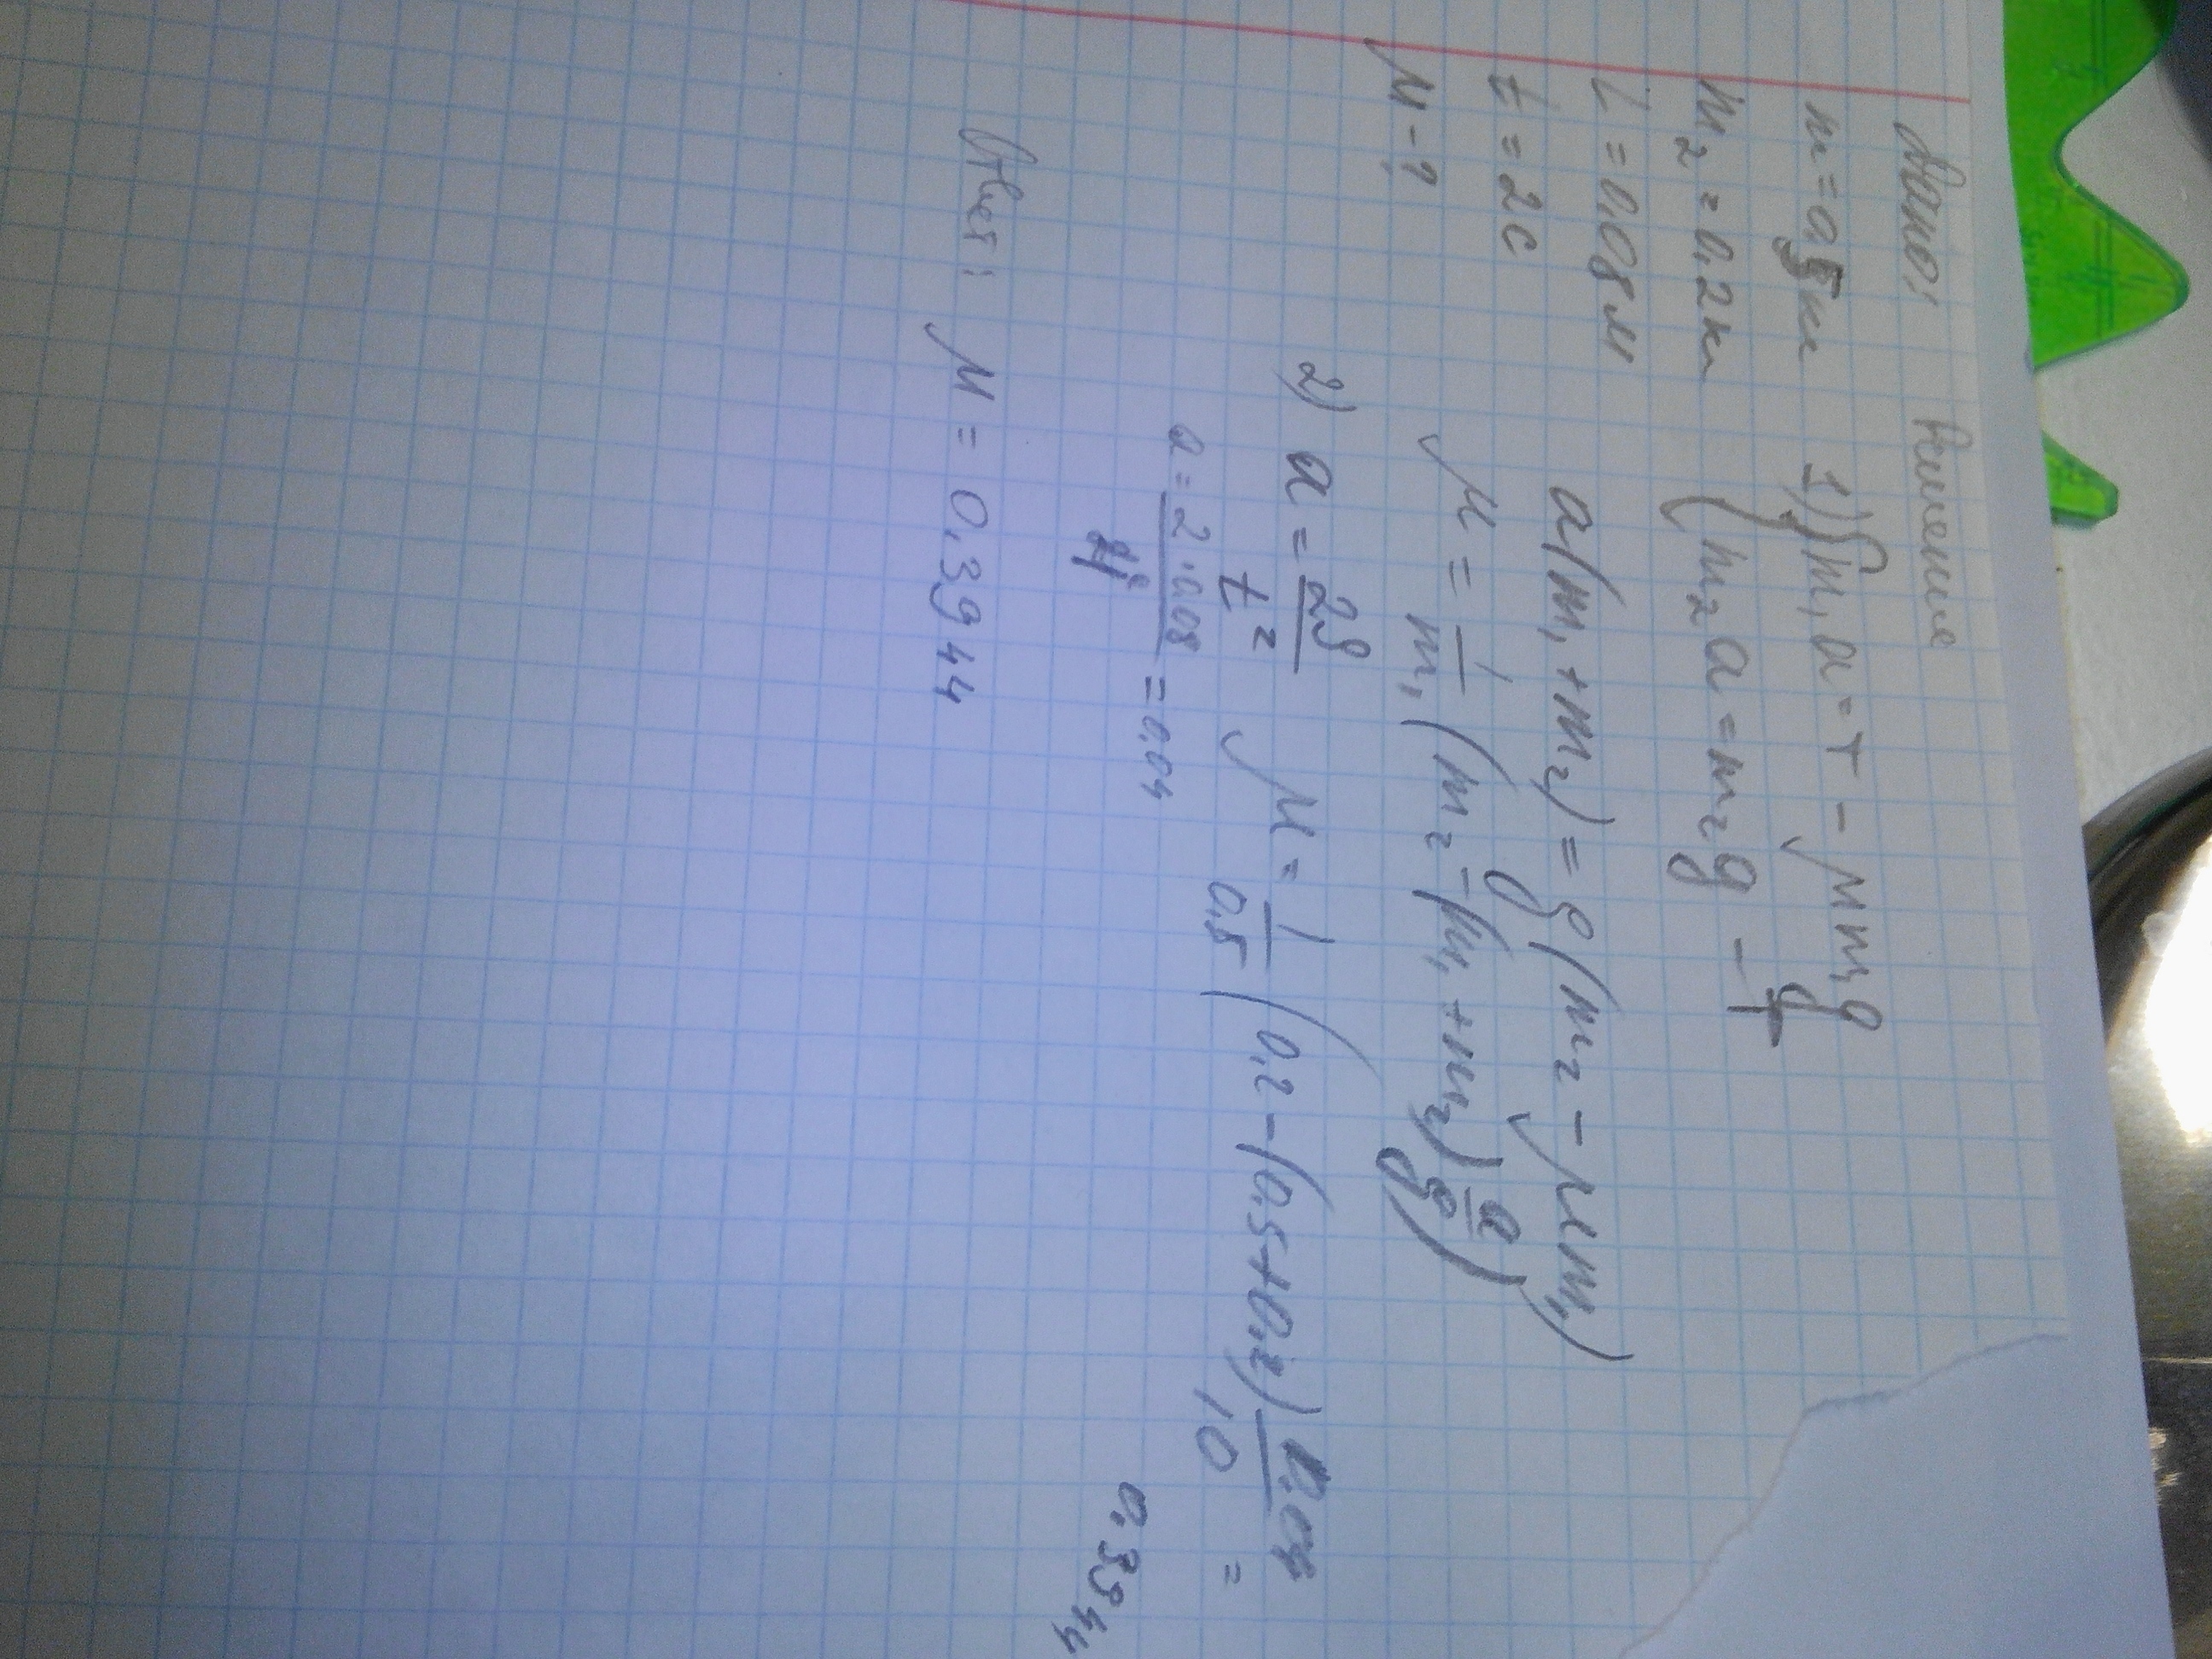 Дано: Решение
m = 0,5 кг 1) { m₁a = T - μm₁g
m₂ = 0,2 кг { m₂a = m₂g - T
L = 0,08 м a(m₁+m₂) = g(m₂ - μm₁)
t = 2с μ = 1/m₁ (m₂ - (m₁+m₂) a/g)
μ - ?
2) a = 2S/t² μ = 1/0,5 (0,2 - (0,5+0,2) 0,04/10 =
a = 2·0,08/4 = 0,04 0,3944
Ответ: μ = 0,3944